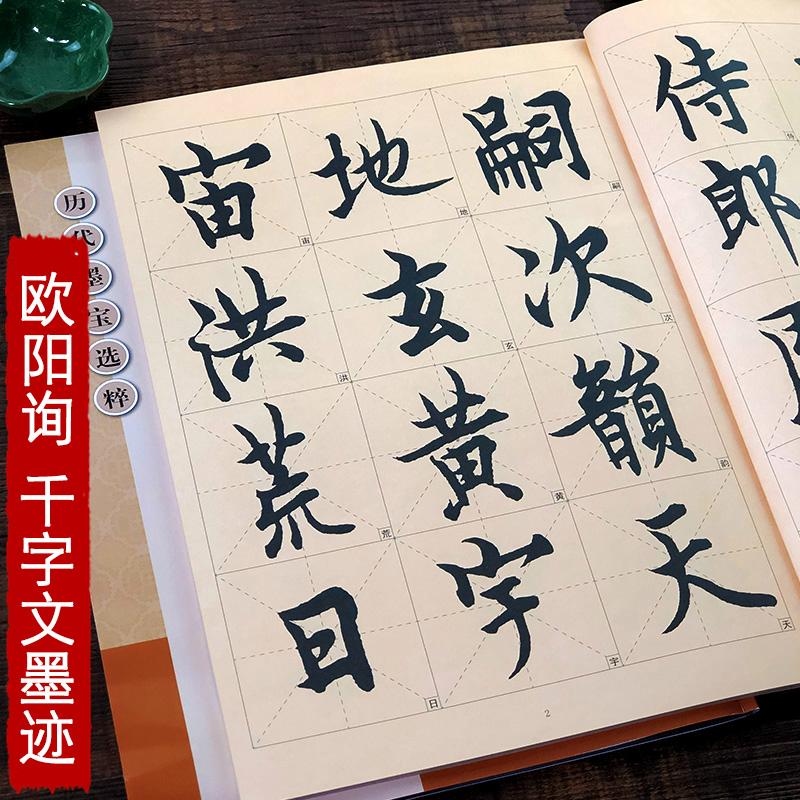 欧阳询 千字文墨迹
历代墨宝选粹
侍郎
嗣次韻天
嗣
次
韵
天
地玄黄宇
地
玄
黄
宇
宙洪荒日
宙
洪
荒
日
2